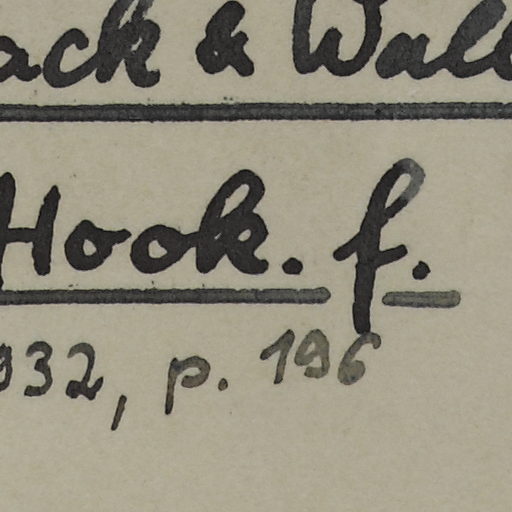 ack & Wall
Hook. f.
932, p. 196